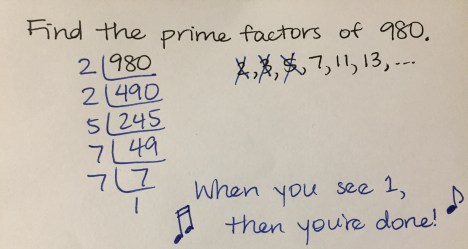 Find the prime factors of 980.
2 980 2, 3, 5, 7, 11, 13, ...
2 490
5 245
7 49
7 7
1
When you see 1,
then you're done!